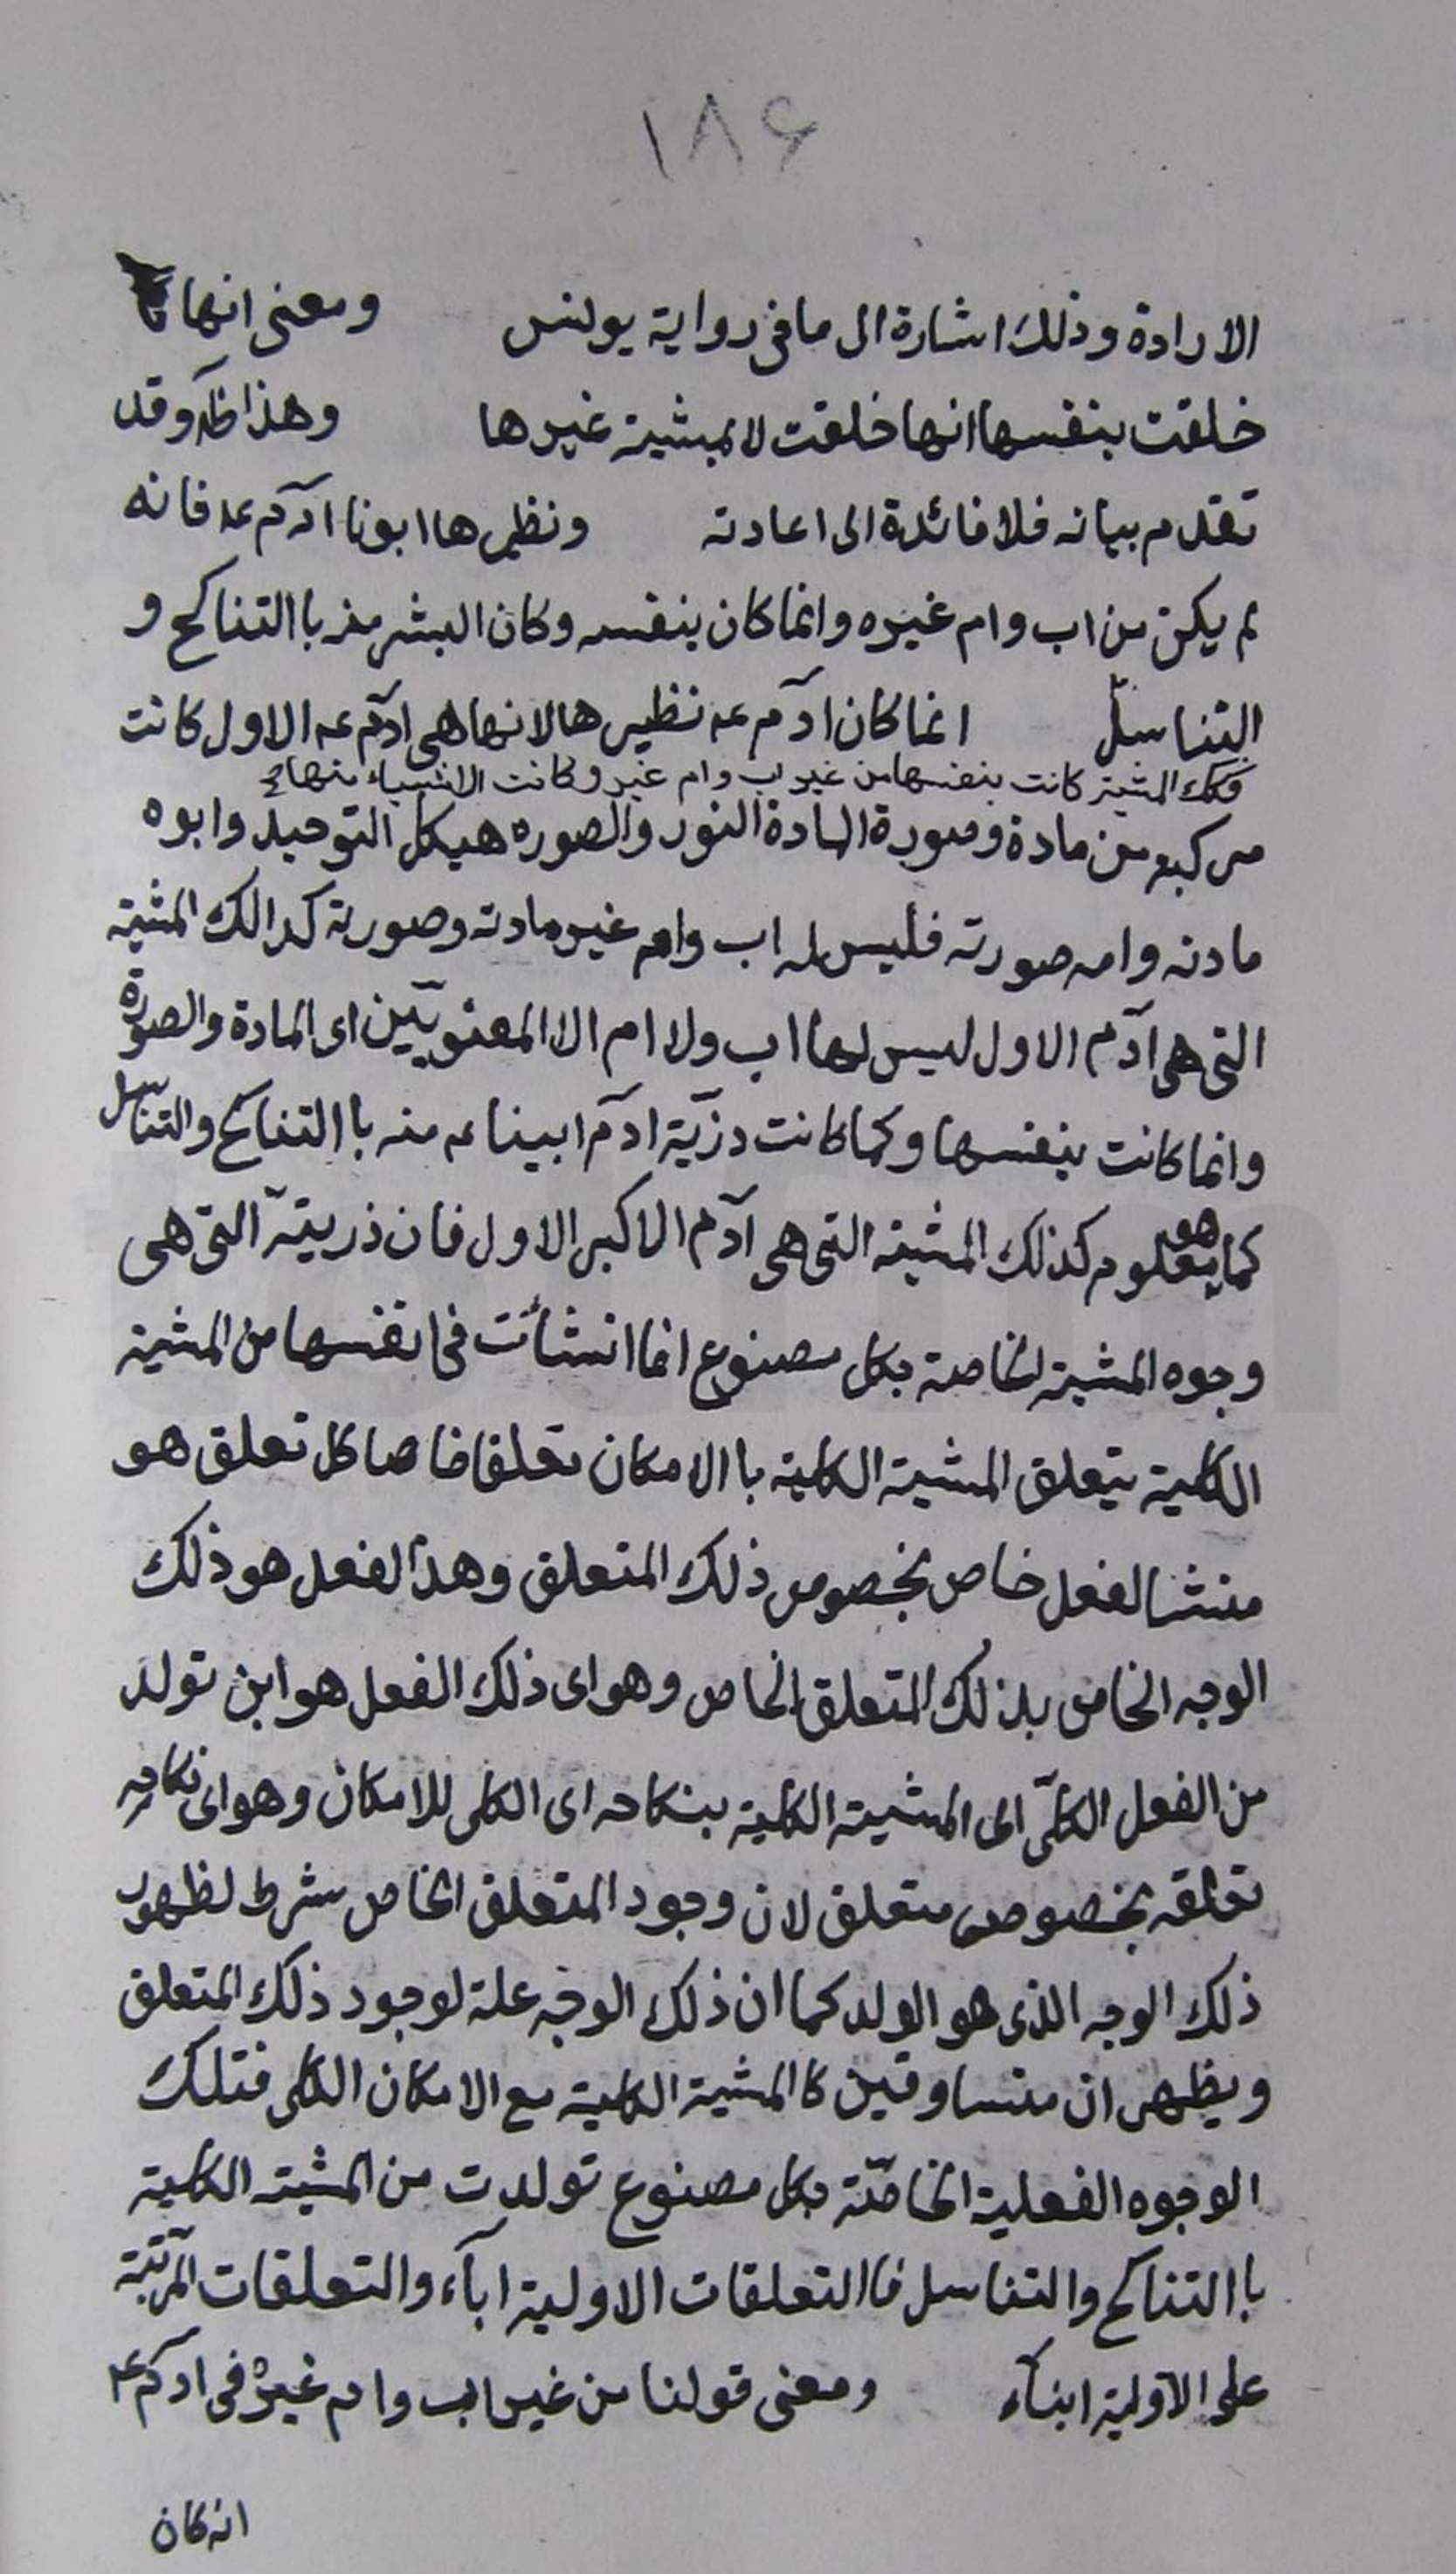 ۱۸۶
الارادة وذلك اشارة الى ما فى رواية يونس ومعنى انها
خلقت بنفسها انها خلقت لا بمشية غيرها وهذا ظ وقد
تقدم بيانه فلا فائدة الى اعادته ونظيرها ابونا آدم عه فانه
لم يكن من اب وام غيره وانما كان بنفسه وكان البشر منه باالتناكح و
التناسل انما كان ادم عه نظيرها لانها هى ادم عه الاول كانت
وكك المشية كانت بنفسها من غير اب وام غير وكانت الاشياء منها
مركبه من مادة وصورة المادة النور والصوره هيكل التوحيد وابوه
مادته وامه صورته فليس له اب وام غير مادته وصورته كذالك المشية
التى هى آدم الاول ليس لها اب ولا ام الا المعنويّين اى المادة والصورة
وانما كانت بنفسها وكما كانت ذرّية ادم ابينا عه منه باالتناكح والتناسل
كما هو معلوم كذلك المشية التى هى آدم الاكبر الاول فان ذريته التى هى
وجوه المشية الخاصة بكل مصنوع انما انشأت فى انفسها من المشية
الكلية بتعلق المشية الكلية باالامكان تعلقا خاصا كل تعلق هو
منشا لفعل خاص بخصوص ذلك المتعلق وهذا لفعل هو ذلك
الوجه الخاص بذلك المتعلق الخاص وهو اى ذلك الفعل هو ابن تولد
من الفعل الكلّى اى المشية الكلية بنكاحه اى الكلى للامكان وهو اى نكاحه
تعلقه بخصوص متعلق لان وجود المتعلق الخاص شرط لظهور
ذلك الوجه الذى هو الولد كما ان ذلك الوجه علة لوجود ذلك المتعلق
ويظهران متساوقين كا المشية الكلية مع الامكان الكلى فتلك
الوجوه الفعلية الخاصّة بكل مصنوع تولدت من المشية الكلية
باالتناكح والتناسل فا التعلقات الاولية ابآء والتعلقات المرتبة
على الاولية ابنآء ومعنى قولنا من غير اب وام غيره فى ادم ع
انه كان